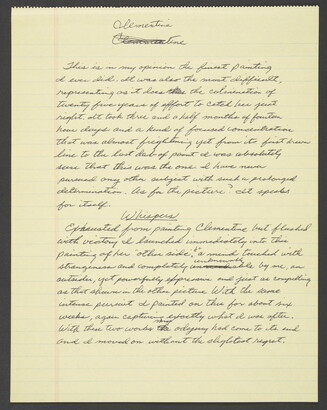 Clementine
This is in my opinion the finest painting
I ever did. It was also the most difficult,
representing as it does the culmination of
twenty five years of effort to catch her just
right. It took three and a half months of fourteen
hour days and a kind of focused concentration
that was almost frightening yet from its first drawn
line to the last dab of paint I was absolutely
sure that this was the one. I have never
pursued any other subject with such a prolonged
determination. As for the picture? It speaks
for itself.
Whispers
Exhausted from painting Clementine but flushed
with victory I launched immediately into this
painting of her "other side," a mind touched with
strangeness and completely by me, an
outsider, yet powerfully and just as compelling
as that shown in the other picture. With the same
intense pursuit I painted on this for about six
weeks, again capturing exactly what I was after.
With these two works my odyssey had come to its end
and I moved on without the slightest regret.